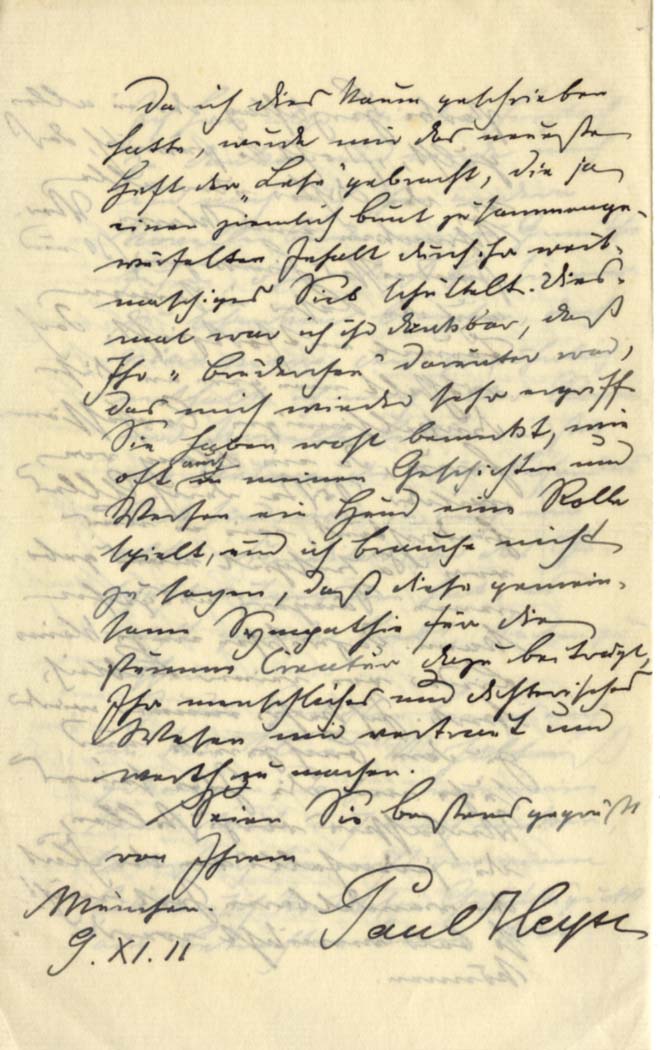 Da ich dies kaum geschrieben
hatte, wurde mir das neueste
Heft der „Lese“ gebracht, die ja
einen ziemlich bunt zusammenge-
würfelten Inhalt durch ihr weit-
maschiges Sieb schüttelt. Dies-
mal war ich ihr dankbar, daß
Ihr „Brüderchen“ darunter war,
das mich wieder sehr ergriff.
Sie haben wohl bemerkt, wie
oft auch in meinen Geschichten und
Versen ein Hund eine Rolle
spielt, und ich brauche nicht
zu sagen, daß diese gemein-
same Sympathie für die
stumme Creatur dazu beiträgt,
Ihr menschliches und dichterisches
Wesen mir vertraut und
werth zu machen.
Seien Sie bestens gegrüßt
von Ihrem
Paul Heyse
München.
9. XI. 11